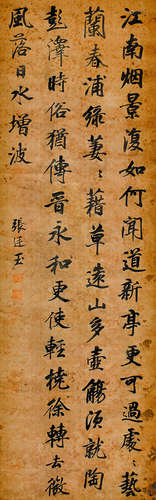 江南烟景復如何聞道新亭更可過處〻藝
蘭春浦綠萋〻藉草遠山多壺觴須就陶
彭澤時俗猶傳晋永和更使輕橈徐轉去微
風落日水增波
張廷玉